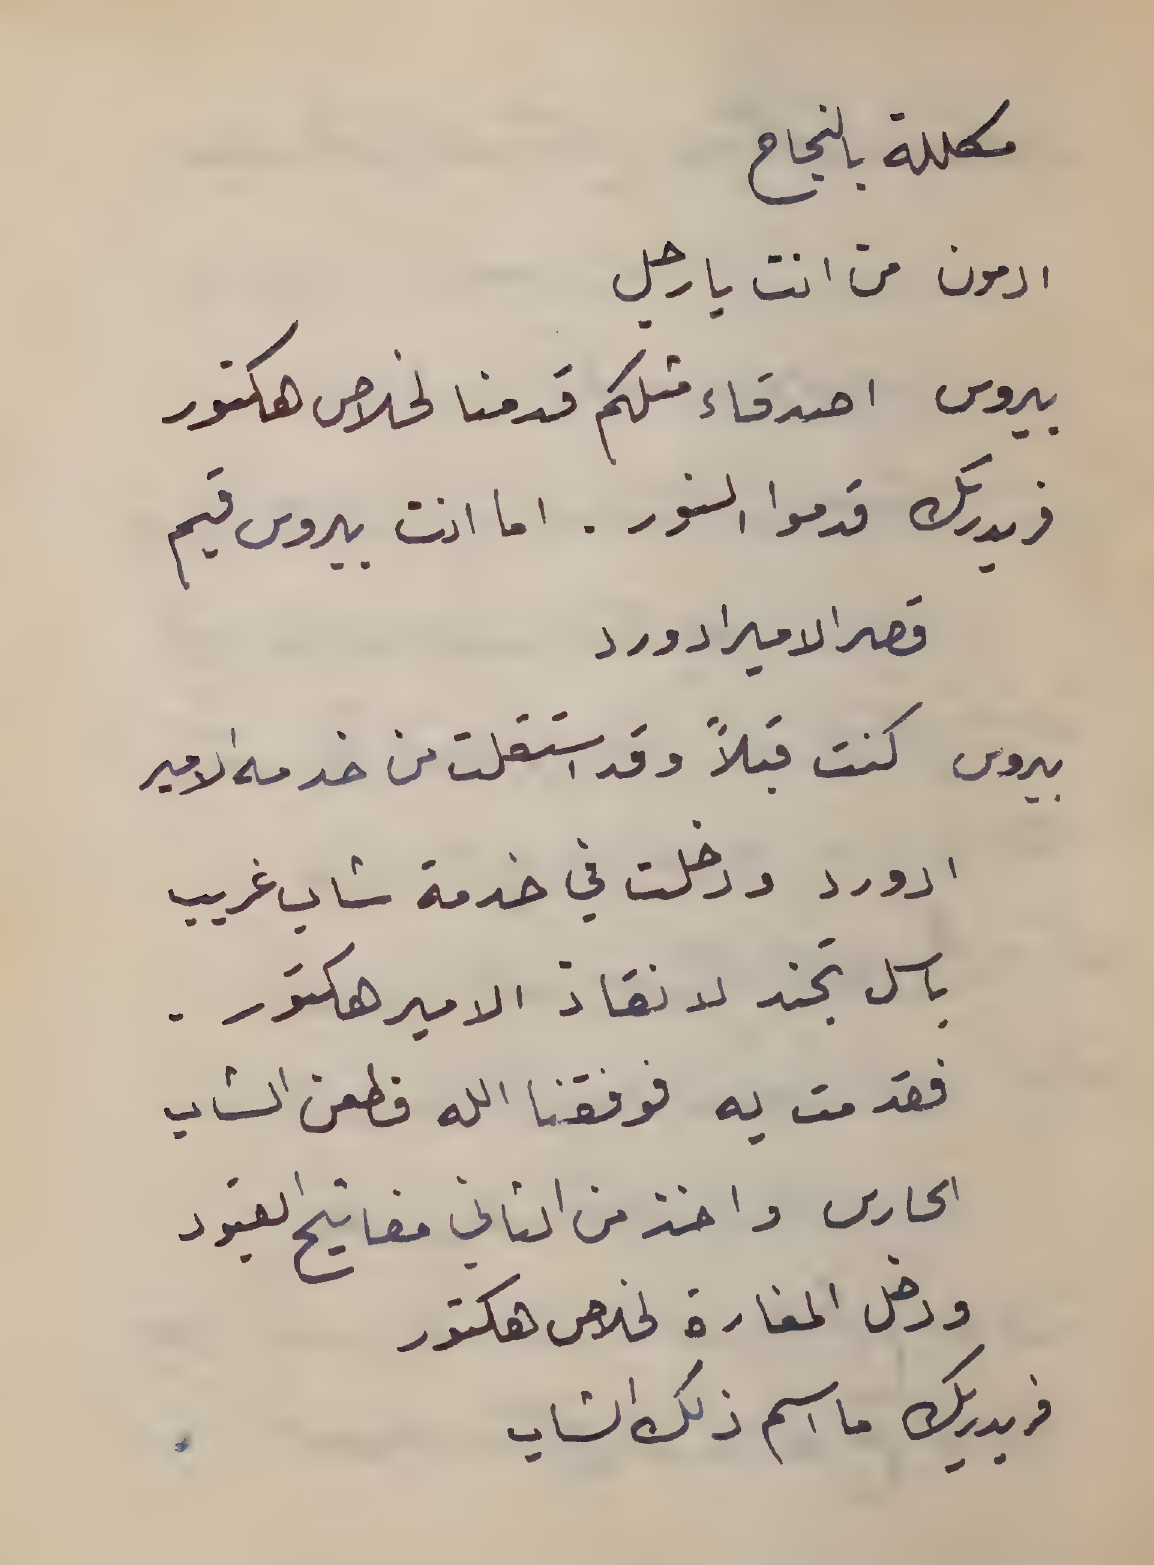 مكللة بالنجاح
ادمون من انت يا رجل
بيروس اصدقاء مثلكم قدمنا لخلاص هكتور
فريدريك قدموا النور . اما انت بيروس قيم
قصر الامير ادورد
بيروس كنت قبلاً وقد استقلت من خدمه الامير
ادورد ودخلت في خدمة شاب غريب
باسل تجند لانقاذ الامير هكتور .
فقدمت به فوفقنا الله فطعن الشاب
الحارس واخذ من الثاني مفاتيح القيود
ودخل المغارة لخلاص هكتور
فريدريك ما اسم ذلك الشاب